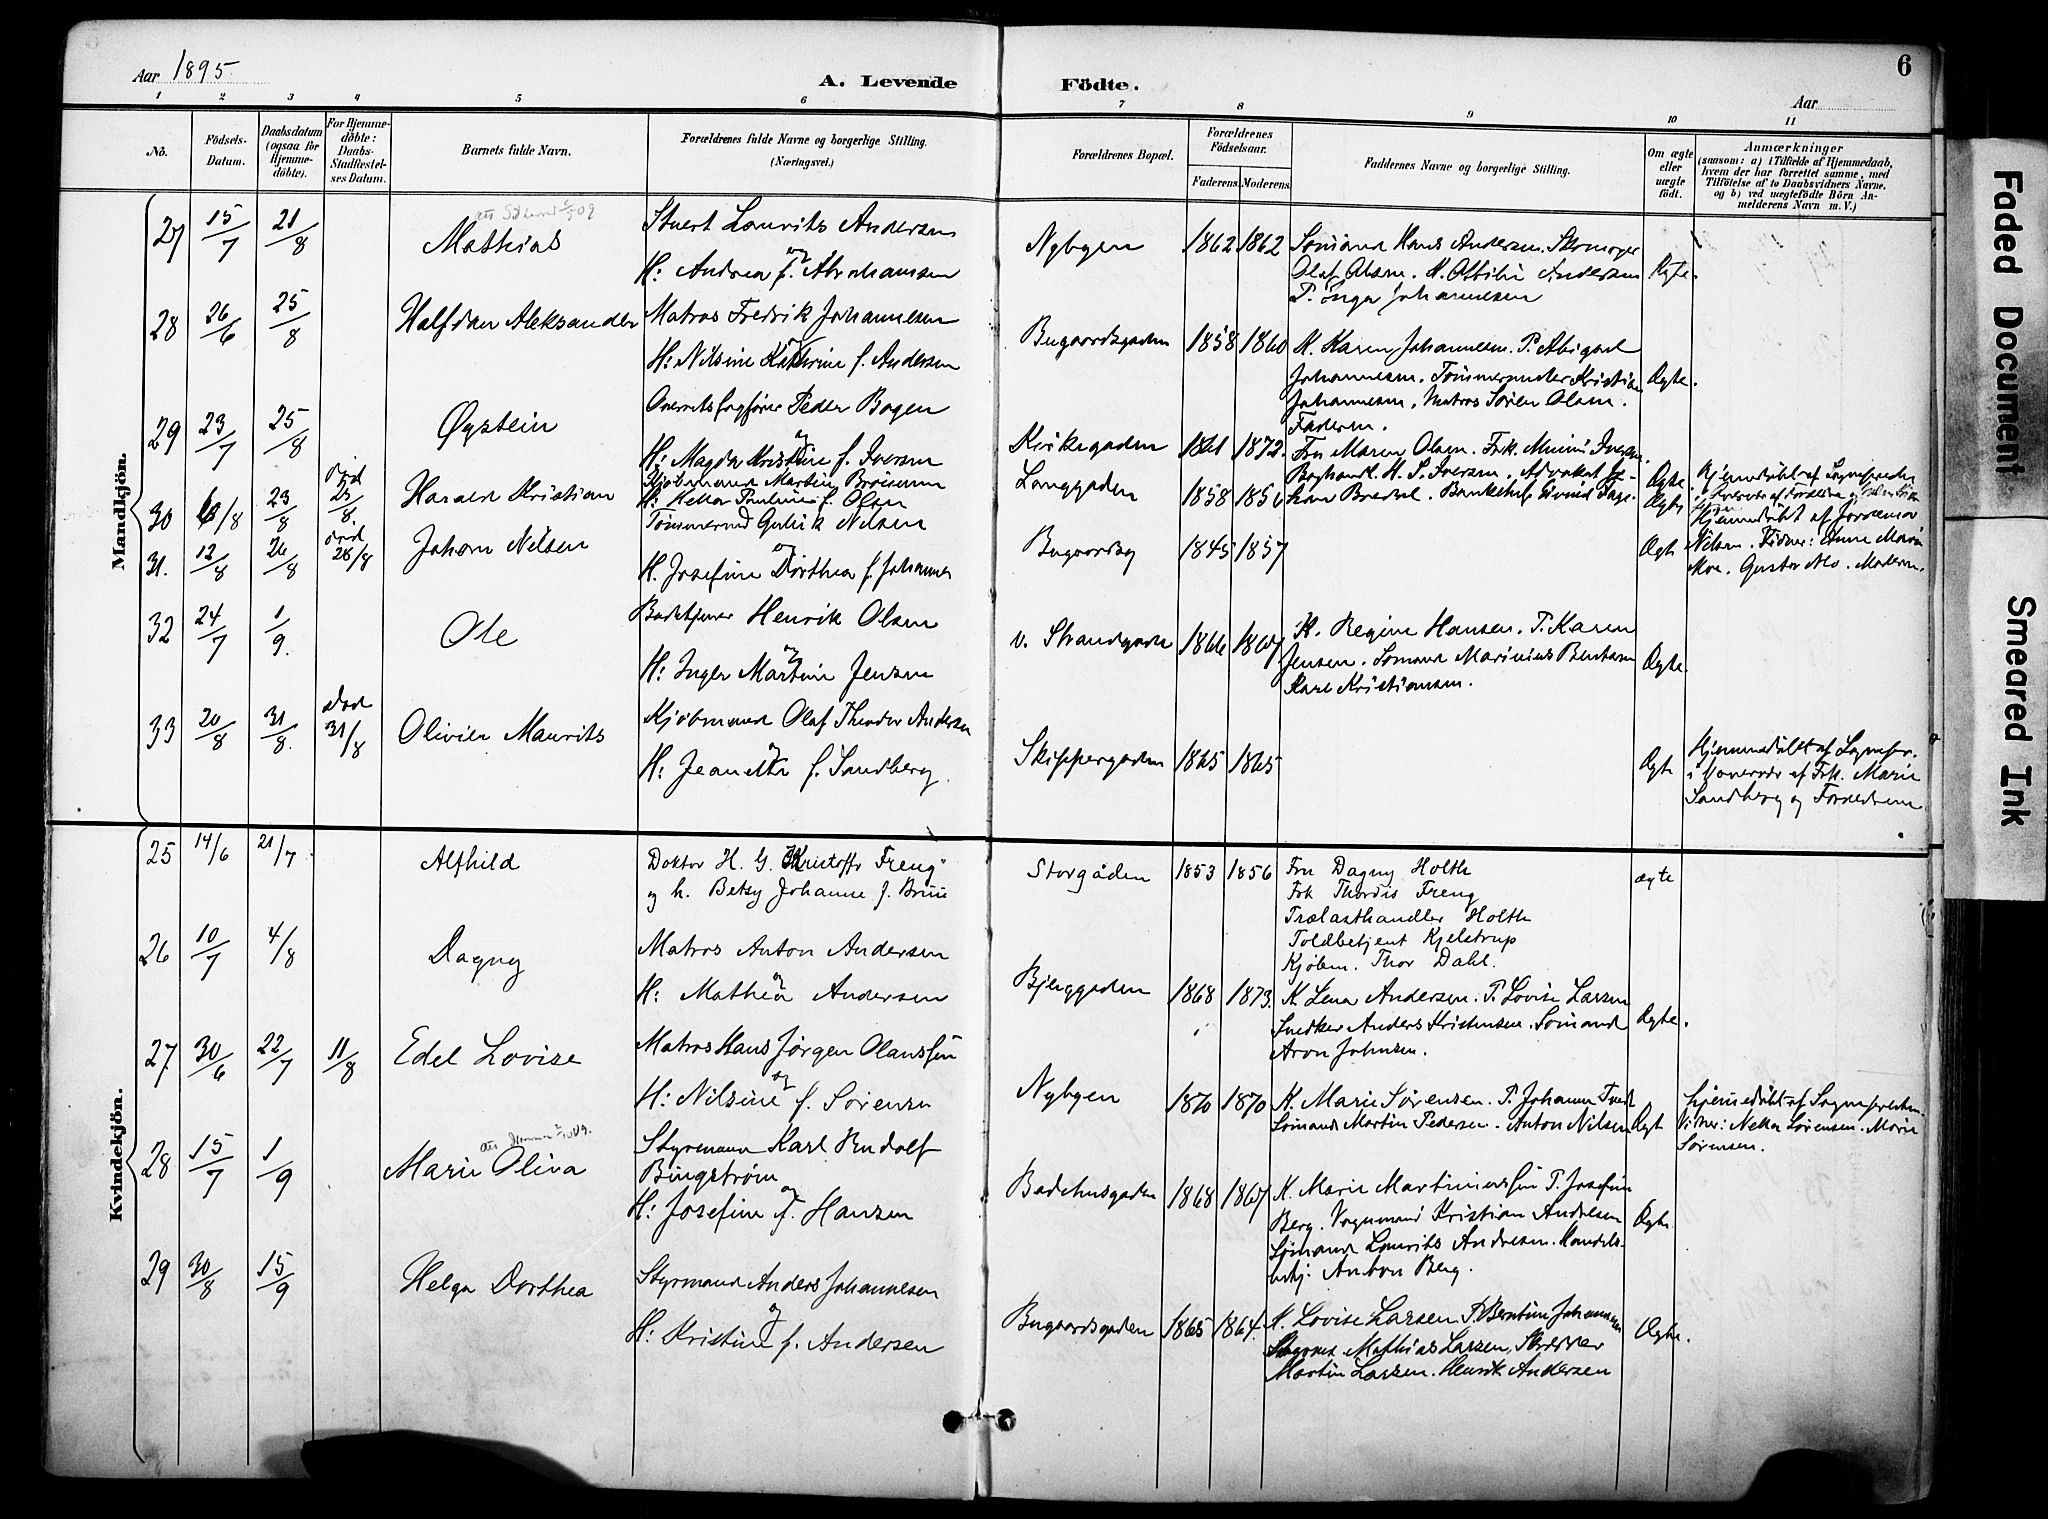 Aar 1895
A. Levende
Födte.
Aar
6
1 2 3 4 5 6 7 8 9 10 11
No.
Födsels-Datum.
Daabsdatum (ogsaa for Hjemmedöbte).
For Hjemmedöbte: Daabs-Stadfæstelses Datum.
Barnets fulde Navn.
Forældrenes fulde Navne og borgerlige Stilling. (Næringsvei.)
Forældrenes Bopæl.
Forældrenes Födselsaar.
Faderens. Moderens.
Faddernes Navne og borgerlige Stilling.
Om ægte eller uægte födt.
Anmærkninger
(saasom: a) i Tilfælde af Hjemmedaab, hvem der har forrettet samme, med Tilföielse af to Daabsvidners Navne, og b) ved uægtefödte Börn Anmelderens Navn m. V.)
Mandkjön.
27 15/7 21/8 Mathias
Stuert Laurits Andersen
og
H: Andrea f. Abrahamsen
Nybyen 1862 1862
Sømand Hans Andersen. Skomager
Olaf Olsen. K. Ottilie Andersen
P. Inga Johannesen
Ægte.
28 26/6 25/8 Halfdan Aleksander
Matros Fredrik Johannesen
H: Nilsine Kathrine f. Andersen
Bugaardsgaden 1858 1860
K. Karen Johannesen. P. Abigael
Johannesen. Tømmermand Kristian
Johannesen. Matros Søren Olsen.
Faderen.
Ægte.
29 23/7 25/8 Øystein
Overretssagfører Peder Bogen
og
H: Magda Kristine f. Iversen
Kirkegaden 1861 1872.
Fru Maren Olsen. Frk. Mimi Iversen.
Boghandl. H. S. Iversen. Advokat
Ægte.
30 6/8 23/8 død 23/8 Harald Kristian
Kjøbmand Martin
H: Helka Pauline f. Olsen
Langgaden 1858 1856
Ægte
Hjemmedøbt af Sognepresten
31. 12/8 26/8 død 28/8 Johan Nilsen
Tømmermd Gulik Nilsen
og
H. Josefine Dorthea f. Johannes
Bugaardsg 1845 1857
Ægte
Hjemmedøbt af Jordemor
Nilsen. Vidner: Anne Marie
Moe. Gustav Moe. Moderen.
32 24/7 1/9. Ole
Badetjener Henrik Olsen
og
H: Inger Martine Jensen
v. Strandgade 1866 1867
K. Regine Hansen. P. Karen
Jensen. Sømand Marinius Berntsen
Karl Kristiansen.
Ægte
33 20/8 31/8. Død 31/8 Olivier Maurits
Kjøbmand Olaf Theodor Andersen
og
H: Jeanette f. Sandberg.
Skippergaden 1865 1865
Ægte
Hjemmedøbt af Sognepr.
i Nærvær af Frk. Marie
Sandberg og Forældrene
Kvindekjön.
25 14/6 21/7 Alfhild
Doktor H. G. Kristoffer Freng
og h. Betsy Johanne f. Bruu
Storgåden 1853 1856
Fru Dagny Holth
Frk Thordis Freng
Trælasthandler Holth
Toldbetjent Kjelstrup
Kjøbm. Thor Dahl.
ægte
26 10/7 4/8 Dagny
Matros Anton Andersen
og
H: Mathea Andersen
Bjerggaden 1868 1873.
K. Lena Andersen. P. Lovise Larsen
Snedker Anders Kristensen. Sømand
Aron Johnsen.
Ægte.
27 30/6 22/7 11/8 Edel Lovise
Matros Hans Jørgen Olaussen
og
H: Nilsine f. Sørensen
Nybyen 1870 1870
K. Marie Sørensen. P. Johanne Tvedt
Sømand Martin Pedersen. Anton Nilsen
Ægte
Hjemmedøbt af Sognepresten.
Vidner: Nella Sørensen. Marie
Sørensen.
28 15/7 1/9 Marie Oliva
Styrmand Karl Rudolf
Bingstrøm
og
H: Josefine f. Hansen
Badehusgaden 1868 1867
K. Marie Martiniussen P. Josefine
Berg. Vognmand Kristian Andresen
Sømand Laurits Andresen. Handels-
betj. Anton Berg.
Ægte
29 30/8 15/9 Helga Dorthea
Styrmand Anders Johannesen
og
H: Kristine f. Andersen
Bugaardsgaden 1865 1864.
K. Lovise Larsen P. Berntine Johannesen
Mathias Larsen, Skrædder
Martin Larsen. Henrik Andersen
Ægte.
Faded Document
Smeared Ink